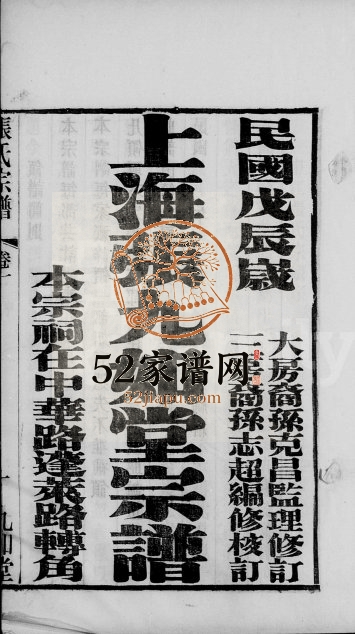 民國戊辰歲
大房裔孫克昌監理修訂
三房裔孫志超編修校訂
上海張九如堂宗譜
本宗祠在中華路逢萊路轉角
張氏宗譜
卷一
九如堂
52家谱网
52jiapu.com